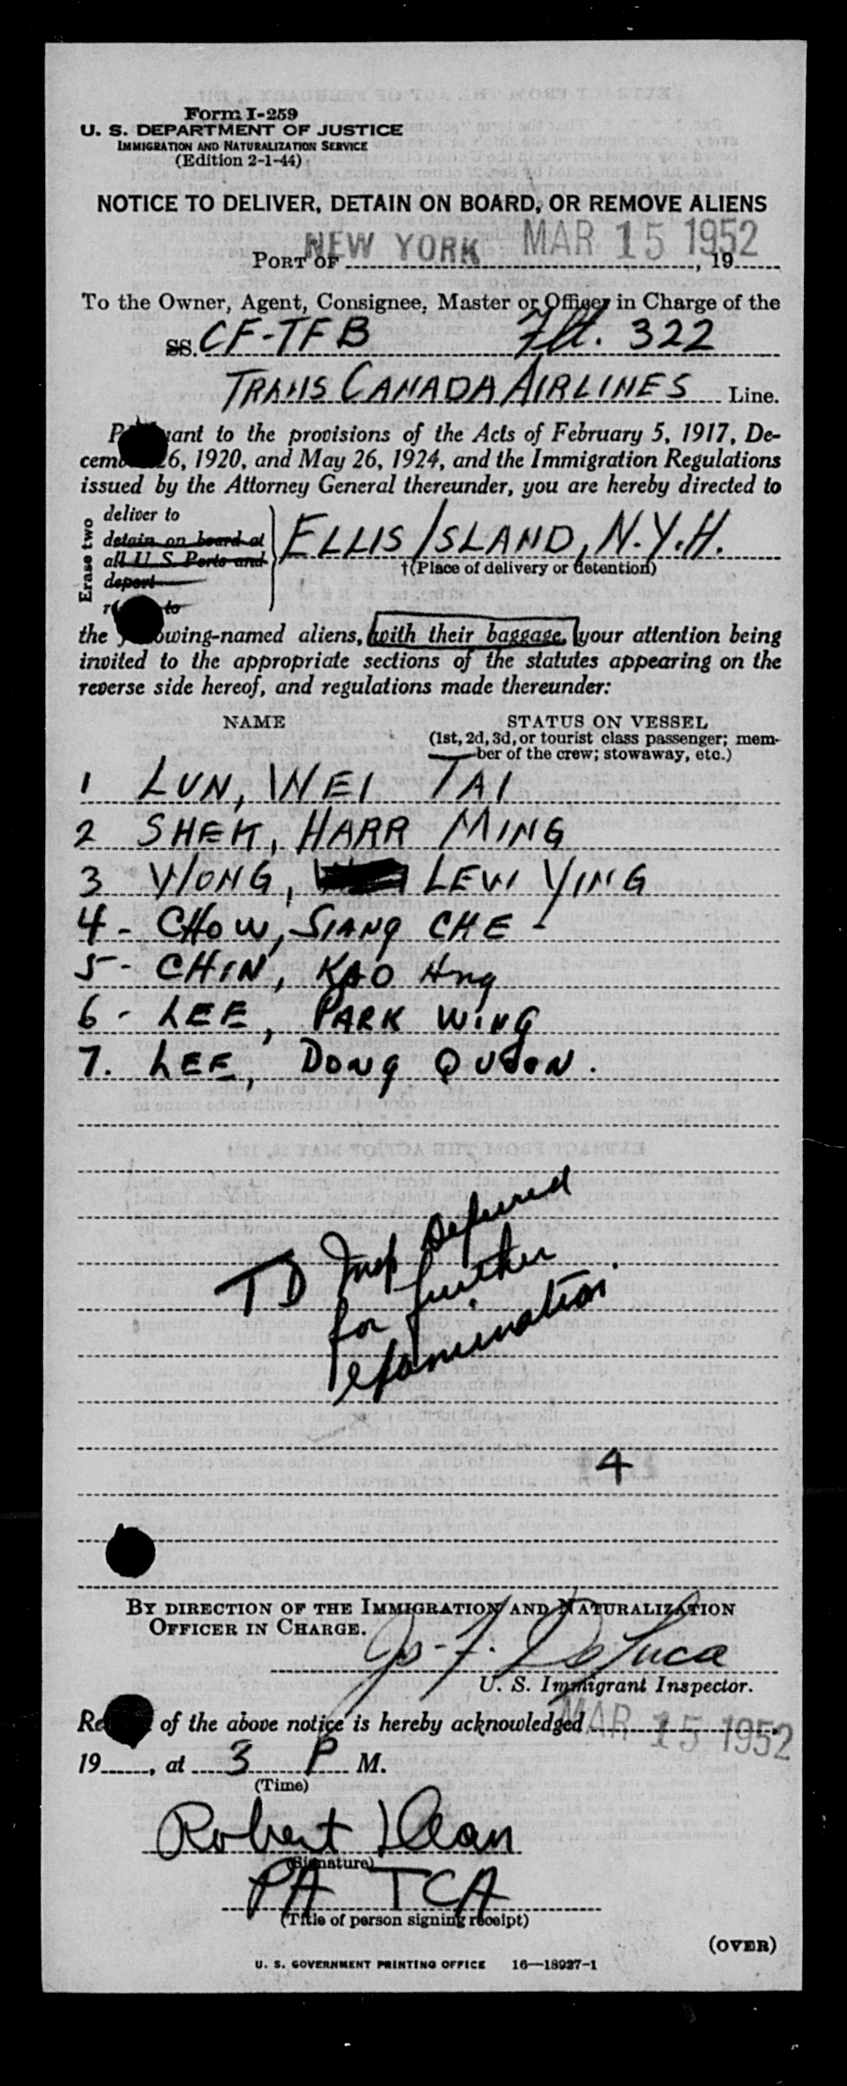 Form I-259
U. S. DEPARTMENT OF JUSTICE
IMMIGRATION AND NATURALIZATION SERVICE
(Edition 2-1-44)
NOTICE TO DELIVER, DETAIN ON BOARD, OR REMOVE ALIENS
PORT OF NEW YORK MAR 15 1952, 19
To the Owner, Agent, Consignee, Master or Officer in Charge of the
SS. CF-TFB Flt. 322
TRANS CANADA AIRLINES Line.
P uant to the provisions of the Acts of February 5, 1917, De-
cem 26, 1920, and May 26, 1924, and the Immigration Regulations
issued by the Attorney General thereunder, you are hereby directed to
Erase two
deliver to
detain on board at
all U. S. Ports and
deport
r to
ELLIS ISLAND, N.Y.H.
†(Place of delivery or detention)
the owing-named aliens, with their baggage, your attention being
invited to the appropriate sections of the statutes appearing on the
reverse side hereof, and regulations made thereunder:
NAME STATUS ON VESSEL
(1st, 2d, 3d, or tourist class passenger; mem-
ber of the crew; stowaway, etc.)
1 LUN, WEI TAI
2 SHEK, HARR MING
3 WONG, LEW YING
4 - CHOW, SIANG CHE -
5 - CHIN, KAO Hng
6 - LEE, PARK WING
7. LEE, DONG QUOON.
TD Insp Deferred
for further
examination.
4
BY DIRECTION OF THE IMMIGRATION AND NATURALIZATION
OFFICER IN CHARGE.
Jos. F. DeLuca
U. S. Immigrant Inspector.
Re of the above notice is hereby acknowledged MAR 15 1952,
19, at 3 P M.
(Time)
Robert Dean
(Signature)
PA TCA
(Title of person signing receipt)
(OVER)
U. S. GOVERNMENT PRINTING OFFICE 16—18927-1